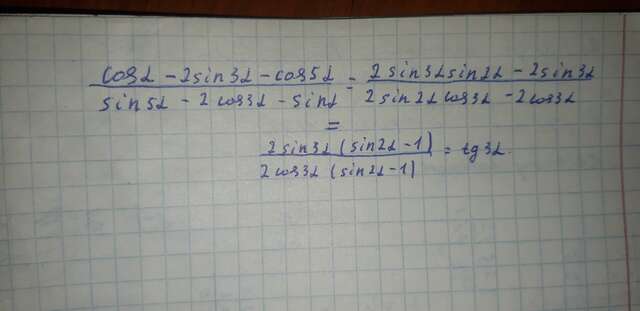 cosα - 2sin3α - cos5α / sin5α - 2cos3α - sinα = 2sin3αsin2α - 2sin3α / 2sin2αcos3α - 2cos3α
=
2sin3α(sin2α-1) / 2cos3α(sin2α-1) = tg3α